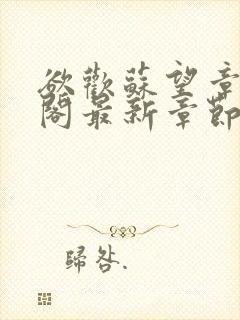 欲歡蘇望章
閣最新章節
歸咎.